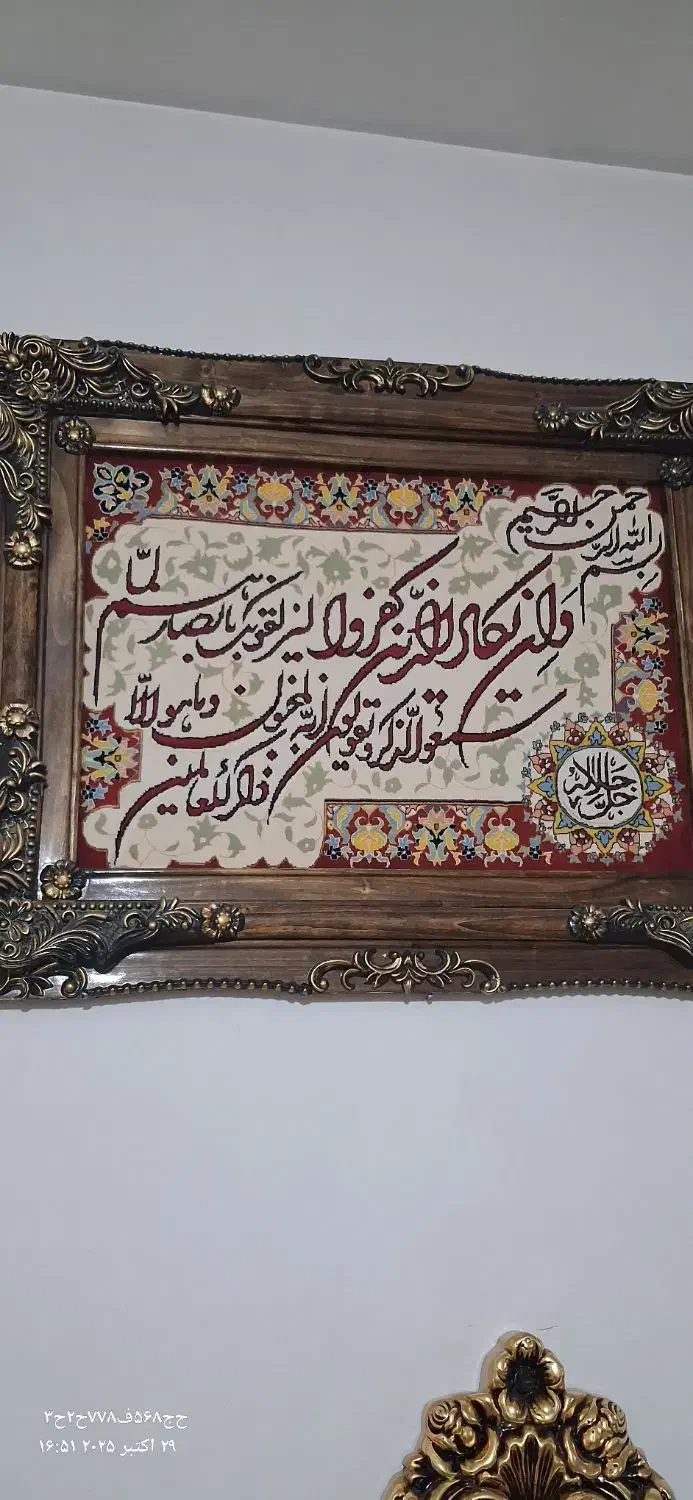 بسم الله الرحمن الرحیم
وَاِن یکاد الذین کفروا لیزلقونک بابصارهم لمّا
سمعوا الذّکر و یقولون انه لمجنون و ما هو الّا
ذکر للعالمین
جل جلاله
حج۵۶۸ف۷۷۸ح۲ح۳
۲۹ اکتبر ۲۰۲۵ ۱۶:۵۱